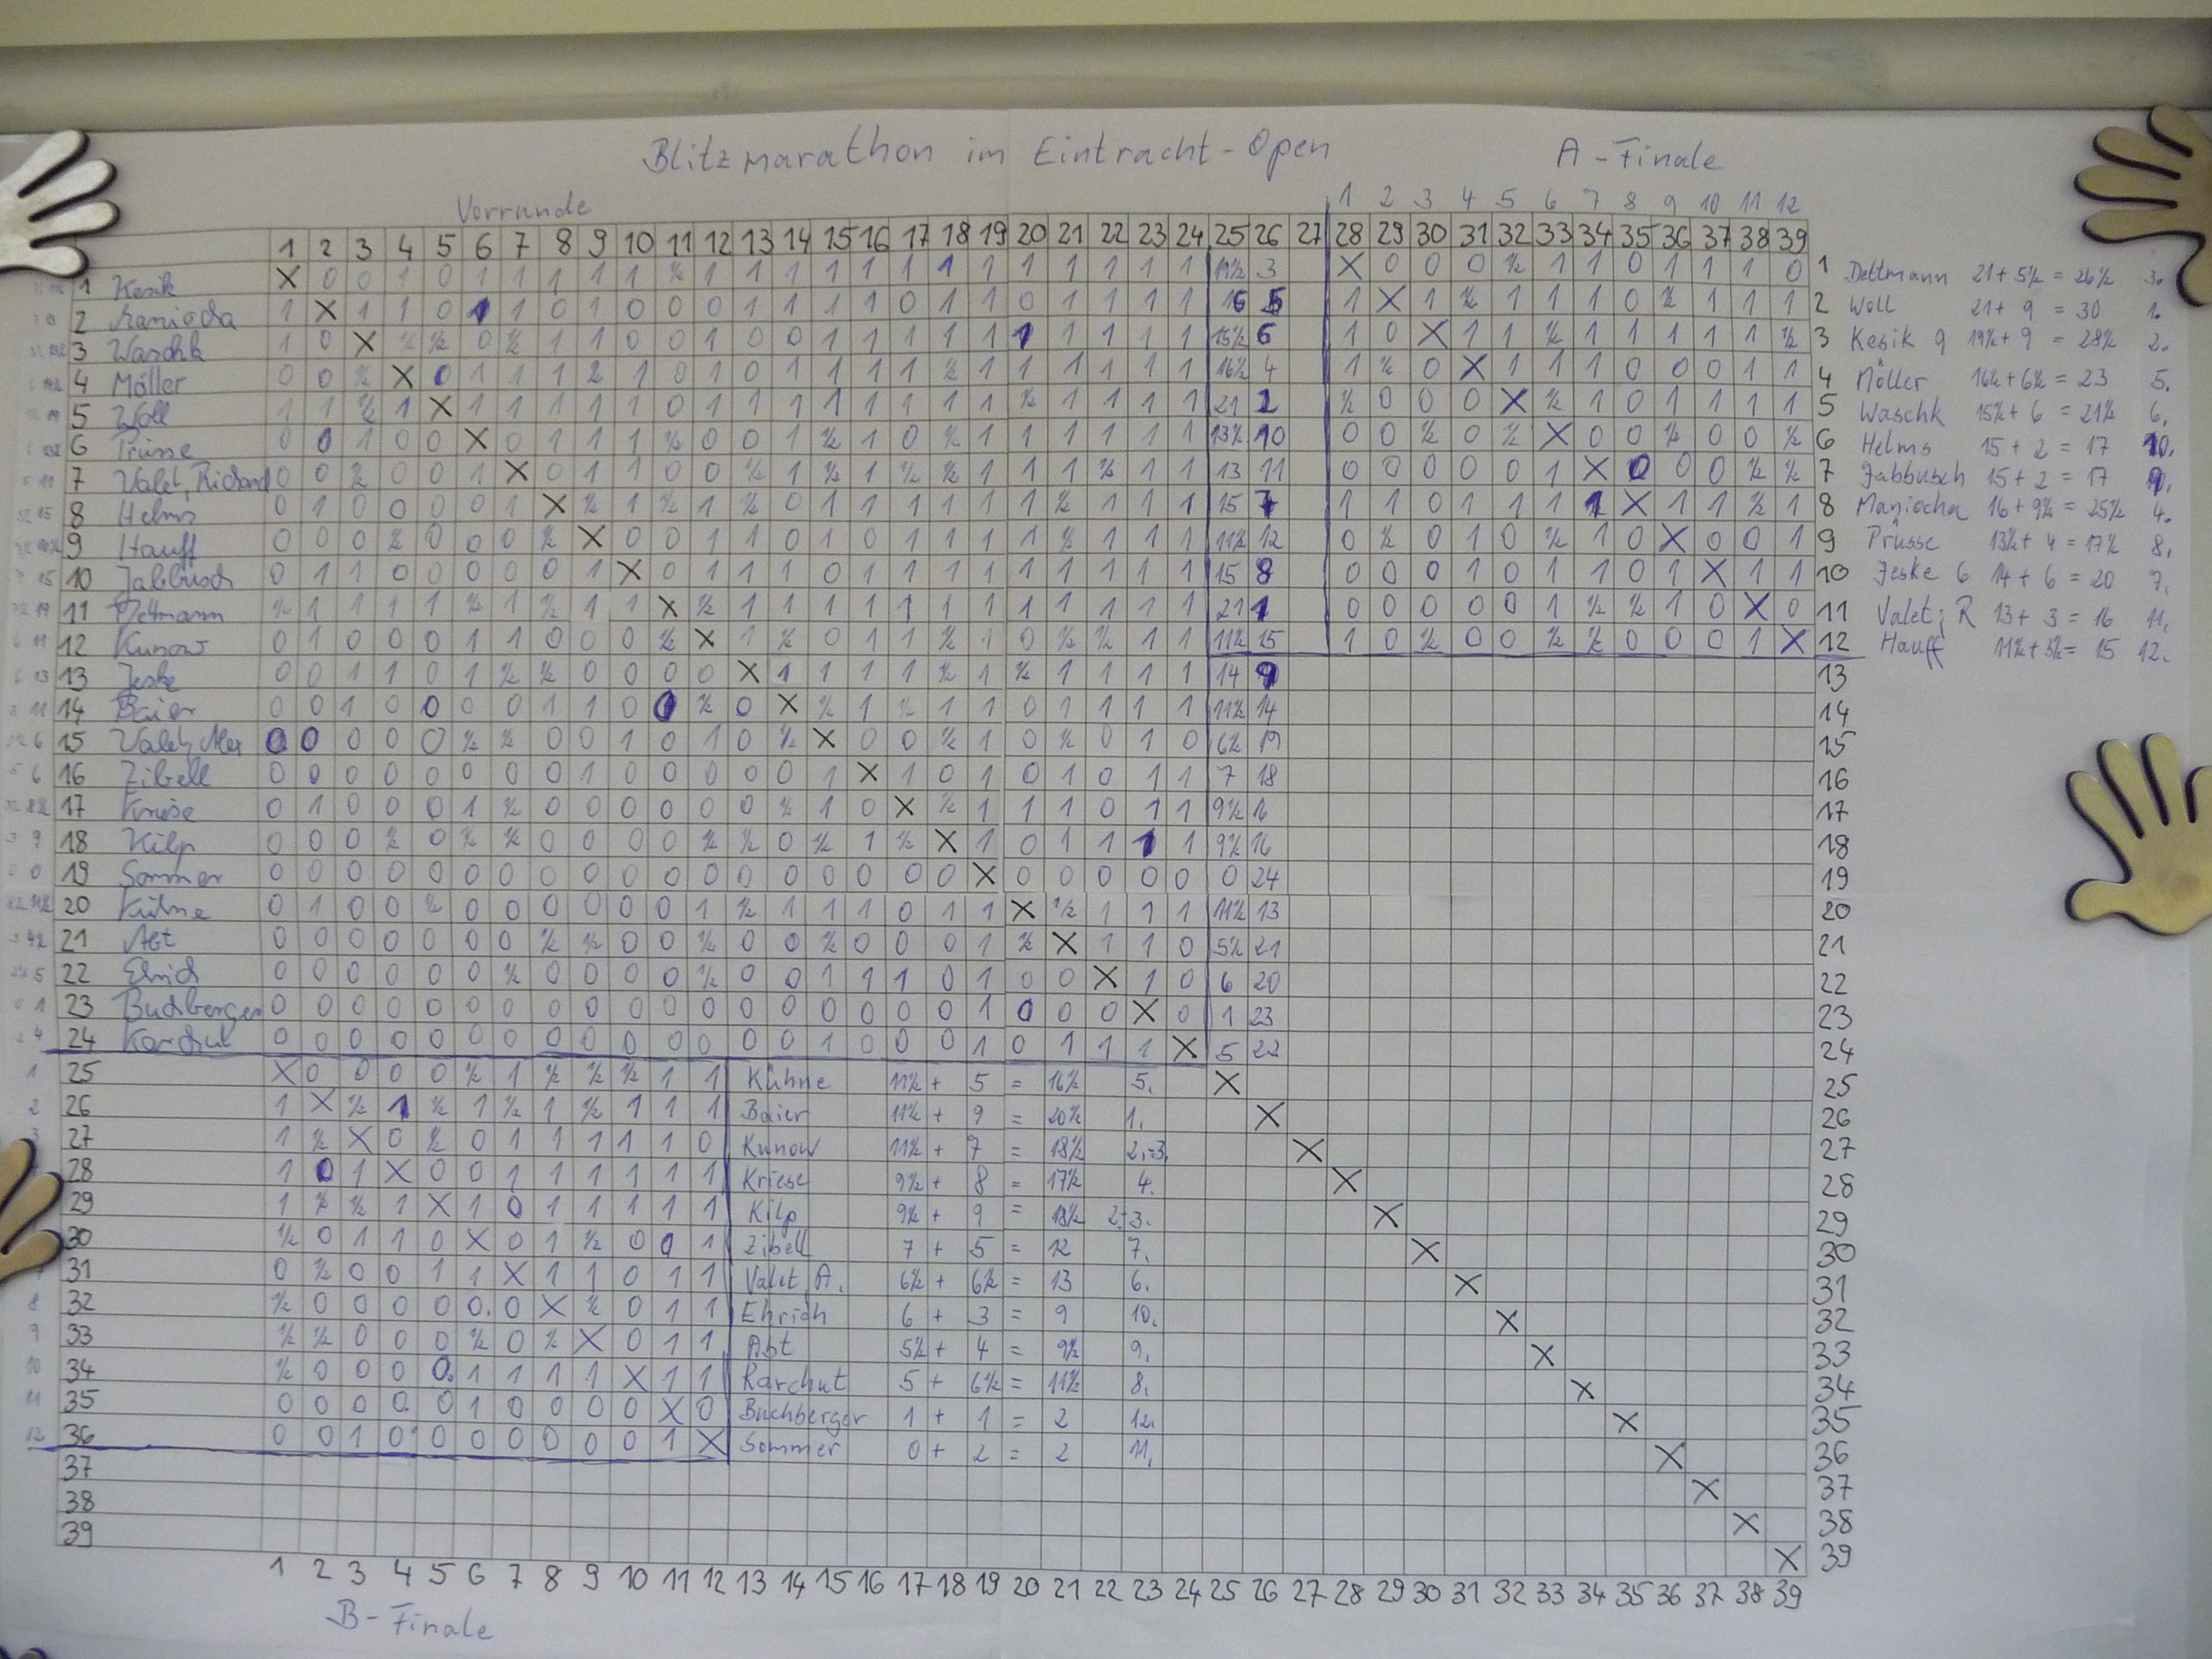 Blitzmarathon im Eintracht-Open A-Finale
Vorrunde 1 2 3 4 5 6 7 8 9 10 11 12
1 2 3 4 5 6 7 8 9 10 11 12 13 14 15 16 17 18 19 20 21 22 23 24 25 26 27 28 29 30 31 32 33 34 35 36 37 38 39
1 Kesik X 0 0 1 0 1 1 1 1 1 ½ 1 1 1 1 1 1 1 1 1 1 1 1 1 19½ 3 X 0 0 0 ½ 1 1 0 1 1 1 0 1 Dettmann 21 + 5½ = 26½ 3.
2 Maniocha 1 X 1 1 0 1 1 0 1 0 0 0 1 1 1 1 0 1 1 0 1 1 1 1 16 5 1 X 1 ½ 1 1 1 0 ½ 1 1 1 2 Woll 21 + 9 = 30 1.
3 Waschk 1 0 X ½ ½ 0 ½ 1 1 0 0 1 0 0 1 1 1 1 1 1 1 1 1 1 15½ 6 1 0 X 1 1 ½ 1 1 1 1 1 ½ 3 Kesik 9 19½ + 9 = 28½ 2.
4 Möller 0 0 ½ X 0 1 1 1 ½ 1 0 1 0 1 1 1 1 ½ 1 1 1 1 1 1 16½ 4 1 ½ 0 X 1 1 1 0 0 0 1 1 4 Möller 16½ + 6½ = 23 5.
5 Woll 1 1 ½ 1 X 1 1 1 1 1 0 1 1 1 1 1 1 1 1 ½ 1 1 1 1 21 2 ½ 0 0 0 X ½ 1 0 1 1 1 1 5 Waschk 15½ + 6 = 21½ 6.
6 Prüsse 0 0 1 0 0 X 0 1 1 1 ½ 0 0 1 ½ 1 0 ½ 1 1 1 1 1 1 13½ 10 0 0 ½ 0 ½ X 0 0 ½ 0 0 ½ 6 Helms 15 + 2 = 17 10.
7 Valet, Richard 0 0 ½ 0 0 1 X 0 1 1 0 0 ½ 1 ½ 1 ½ ½ 1 1 1 ½ 1 1 13 11 0 0 0 0 0 1 X 0 0 0 ½ ½ 7 Jabbusch 15 + 2 = 17 9.
8 Helms 0 1 0 0 0 0 1 X ½ 1 ½ 1 ½ 0 1 1 1 1 1 1 ½ 1 1 1 15 7 1 1 0 1 1 1 1 X 1 1 ½ 1 8 Maniocha 16 + 9½ = 25½ 4.
9 Hauff 0 0 0 ½ 0 0 0 ½ X 0 0 1 1 0 1 0 1 1 1 1 ½ 1 1 1 11½ 12 0 ½ 0 1 0 ½ 1 0 X 0 0 1 9 Prüsse 13½ + 4 = 17½ 8.
10 Jabbusch 0 1 1 0 0 0 0 0 1 X 0 1 1 1 0 1 1 1 1 1 1 1 1 1 15 8 0 0 0 1 0 1 1 0 1 X 1 1 10 Jeske 6 14 + 6 = 20 7.
11 Dettmann ½ 1 1 1 1 ½ 1 ½ 1 1 X ½ 1 1 1 1 1 1 1 1 1 1 1 1 21 1 0 0 0 0 0 1 ½ ½ 1 0 X 0 11 Valet, R 13 + 3 = 16 11.
12 Kunow 0 1 0 0 0 1 1 0 0 0 ½ X 1 ½ 0 1 1 ½ 1 0 ½ ½ 1 1 11½ 15 1 0 ½ 0 0 ½ ½ 0 0 0 1 X 12 Hauff 11½ + 3½ = 15 12.
13 Jeske 0 0 1 1 0 1 ½ ½ 0 0 0 0 X 1 1 1 1 ½ 1 ½ 1 1 1 1 14 9 13
14 Baier 0 0 1 0 0 0 0 1 1 0 0 ½ 0 X ½ 1 ½ 1 1 0 1 1 1 1 11½ 14 14
15 Valet, Alex 0 0 0 0 0 ½ ½ 0 0 1 0 1 0 ½ X 0 0 ½ 1 0 ½ 0 1 0 6½ 19 15
16 Zibell 0 0 0 0 0 0 0 0 1 0 0 0 0 0 1 X 1 0 1 0 1 0 1 1 7 18 16
17 Kriese 0 1 0 0 0 1 ½ 0 0 0 0 0 0 ½ 1 0 X ½ 1 1 1 0 1 1 9½ 16 17
18 Kilp 0 0 0 ½ 0 ½ ½ 0 0 0 0 ½ ½ 0 ½ 1 ½ X 1 0 1 1 1 1 9½ 16 18
19 Sommer 0 0 0 0 0 0 0 0 0 0 0 0 0 0 0 0 0 0 X 0 0 0 0 0 0 24 19
20 Kühne 0 1 0 0 ½ 0 0 0 0 0 0 1 ½ 1 1 1 0 1 1 X ½ 1 1 1 11½ 13 20
21 Abt 0 0 0 0 0 0 0 ½ ½ 0 0 ½ 0 0 ½ 0 0 0 1 ½ X 1 1 0 5½ 21 21
22 Ehrich 0 0 0 0 0 0 ½ 0 0 0 0 ½ 0 0 1 1 1 0 1 0 0 X 1 0 6 20 22
23 Buchberger 0 0 0 0 0 0 0 0 0 0 0 0 0 0 0 0 0 0 1 0 0 0 X 0 1 23 23
24 Karchut 0 0 0 0 0 0 0 0 0 0 0 0 0 0 1 0 0 0 1 0 1 1 1 X 5 22 24
25 X 0 0 0 0 ½ 1 ½ ½ ½ 1 1 Kühne 11½ + 5 = 16½ 5. X 25
26 1 X ½ 1 ½ 1 ½ 1 ½ 1 1 1 Baier 11½ + 9 = 20½ 1. X 26
27 1 ½ X 0 ½ 0 1 1 1 1 1 0 Kunow 11½ + 7 = 18½ 2.-3. X 27
28 1 0 1 X 0 0 1 1 1 1 1 1 Kriese 9½ + 8 = 17½ 4. X 28
29 1 ½ ½ 1 X 1 0 1 1 1 1 1 Kilp 9½ + 9 = 18½ 2.-3. X 29
30 ½ 0 1 1 0 X 0 1 ½ 0 0 1 Zibell 7 + 5 = 12 7. X 30
31 0 ½ 0 0 1 1 X 1 1 0 1 1 Valet, A. 6½ + 6½ = 13 6. X 31
32 ½ 0 0 0 0 0. 0 X ½ 0 1 1 Ehrich 6 + 3 = 9 10. X 32
33 ½ ½ 0 0 0 ½ 0 ½ X 0 1 1 Abt 5½ + 4 = 9½ 9. X 33
34 ½ 0 0 0 0. 1 1 1 1 X 1 1 Karchut 5 + 6½ = 11½ 8. X 34
35 0 0 0 0. 0 1 0 0 0 0 X 0 Buchberger 1 + 1 = 2 12. X 35
36 0 0 1 0 0 0 0 0 0 0 1 X Sommer 0 + 2 = 2 11. X 36
37 X 37
38 X 38
39 X 39
1 2 3 4 5 6 7 8 9 10 11 12 13 14 15 16 17 18 19 20 21 22 23 24 25 26 27 28 29 30 31 32 33 34 35 36 37 38 39
B-Finale